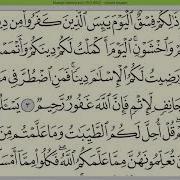 ذَٰلِكُمْ فِسْقٌ ٱلْيَوْمَ يَئِسَ ٱلَّذِينَ كَفَرُوا۟ مِن دِي
وَٱخْشَوْنِ ٱلْيَوْمَ أَكْمَلْتُ لَكُمْ دِينَكُمْ وَأَتْمَمْ
رَضِيتُ لَكُمُ ٱلْإِسْلَٰمَ دِينًا فَمَنِ ٱضْطُرَّ فِى مَ
جَانِفٍ لِّإِثْمٍ فَإِنَّ ٱللَّهَ غَفُورٌ رَّحِيمٌ ٣ يَسْـَٔلُ
مْ قُلْ أُحِلَّ لَكُمُ ٱلطَّيِّبَٰتُ وَمَا عَلَّمْتُم مِّنَ
تُعَلِّمُونَهُنَّ مِمَّا عَلَّمَكُمُ ٱللَّهُ فَكُلُوا۟ مِمَّآ أَمْسَ